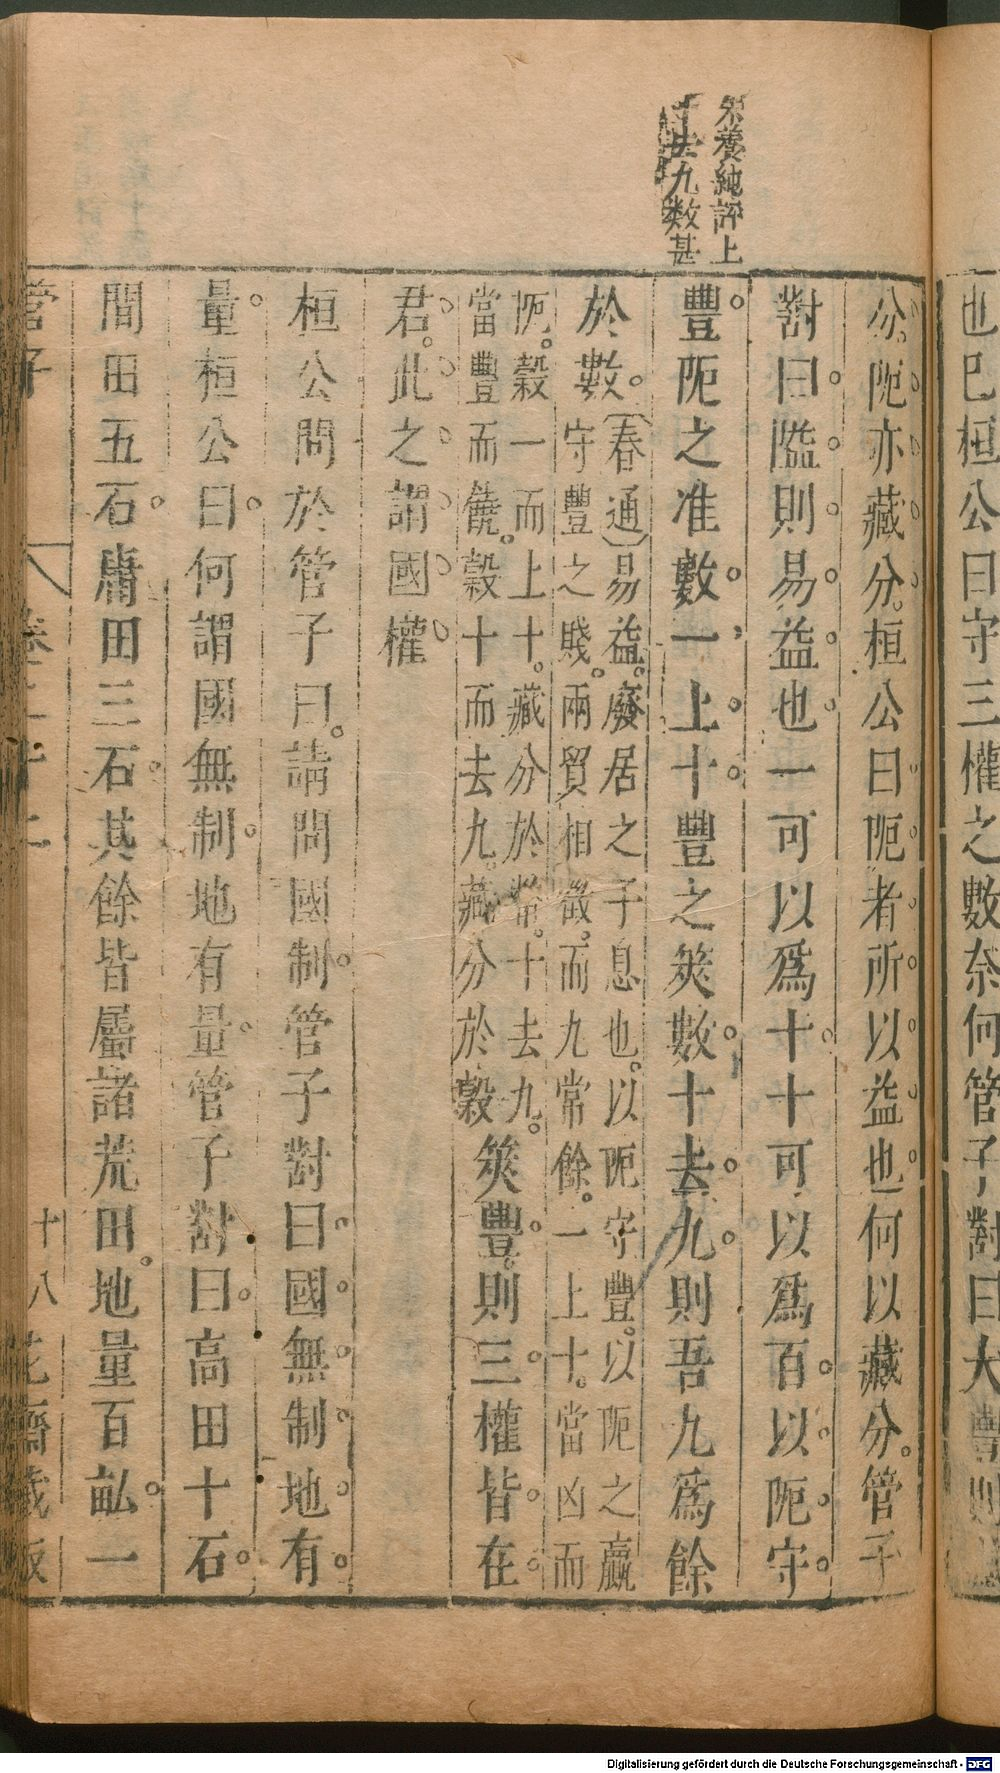 也巳桓公曰守三權之數奈何管子對曰大豐則
分阨亦藏分桓公曰阨者所以益也何以藏分管子
對曰隘則易益也一可以爲十十可以爲百以阨守
豐阨之准數一上十豐之筴數十去九則吾九爲餘
於數(春通)易益廢居之子息也以阨守豐以阨之贏
守豐之賤兩貿相徵而九常餘一上十當凶而
阨穀一而上十藏分於幣十去九
當豐而饒穀十而去九藏分於穀
筴豐則三權皆在
君此之謂國權
桓公問於管子曰請問國制管子對曰國無制地有
量桓公曰何謂國無制地有量管子對曰高田十石
間田五石庸田三石其餘皆屬諸荒田地量百畝一
朱養純評上
十去九數甚
管子
十八
花齋藏板
Digitalisierung gefördert durch die Deutsche Forschungsgemeinschaft - DFG